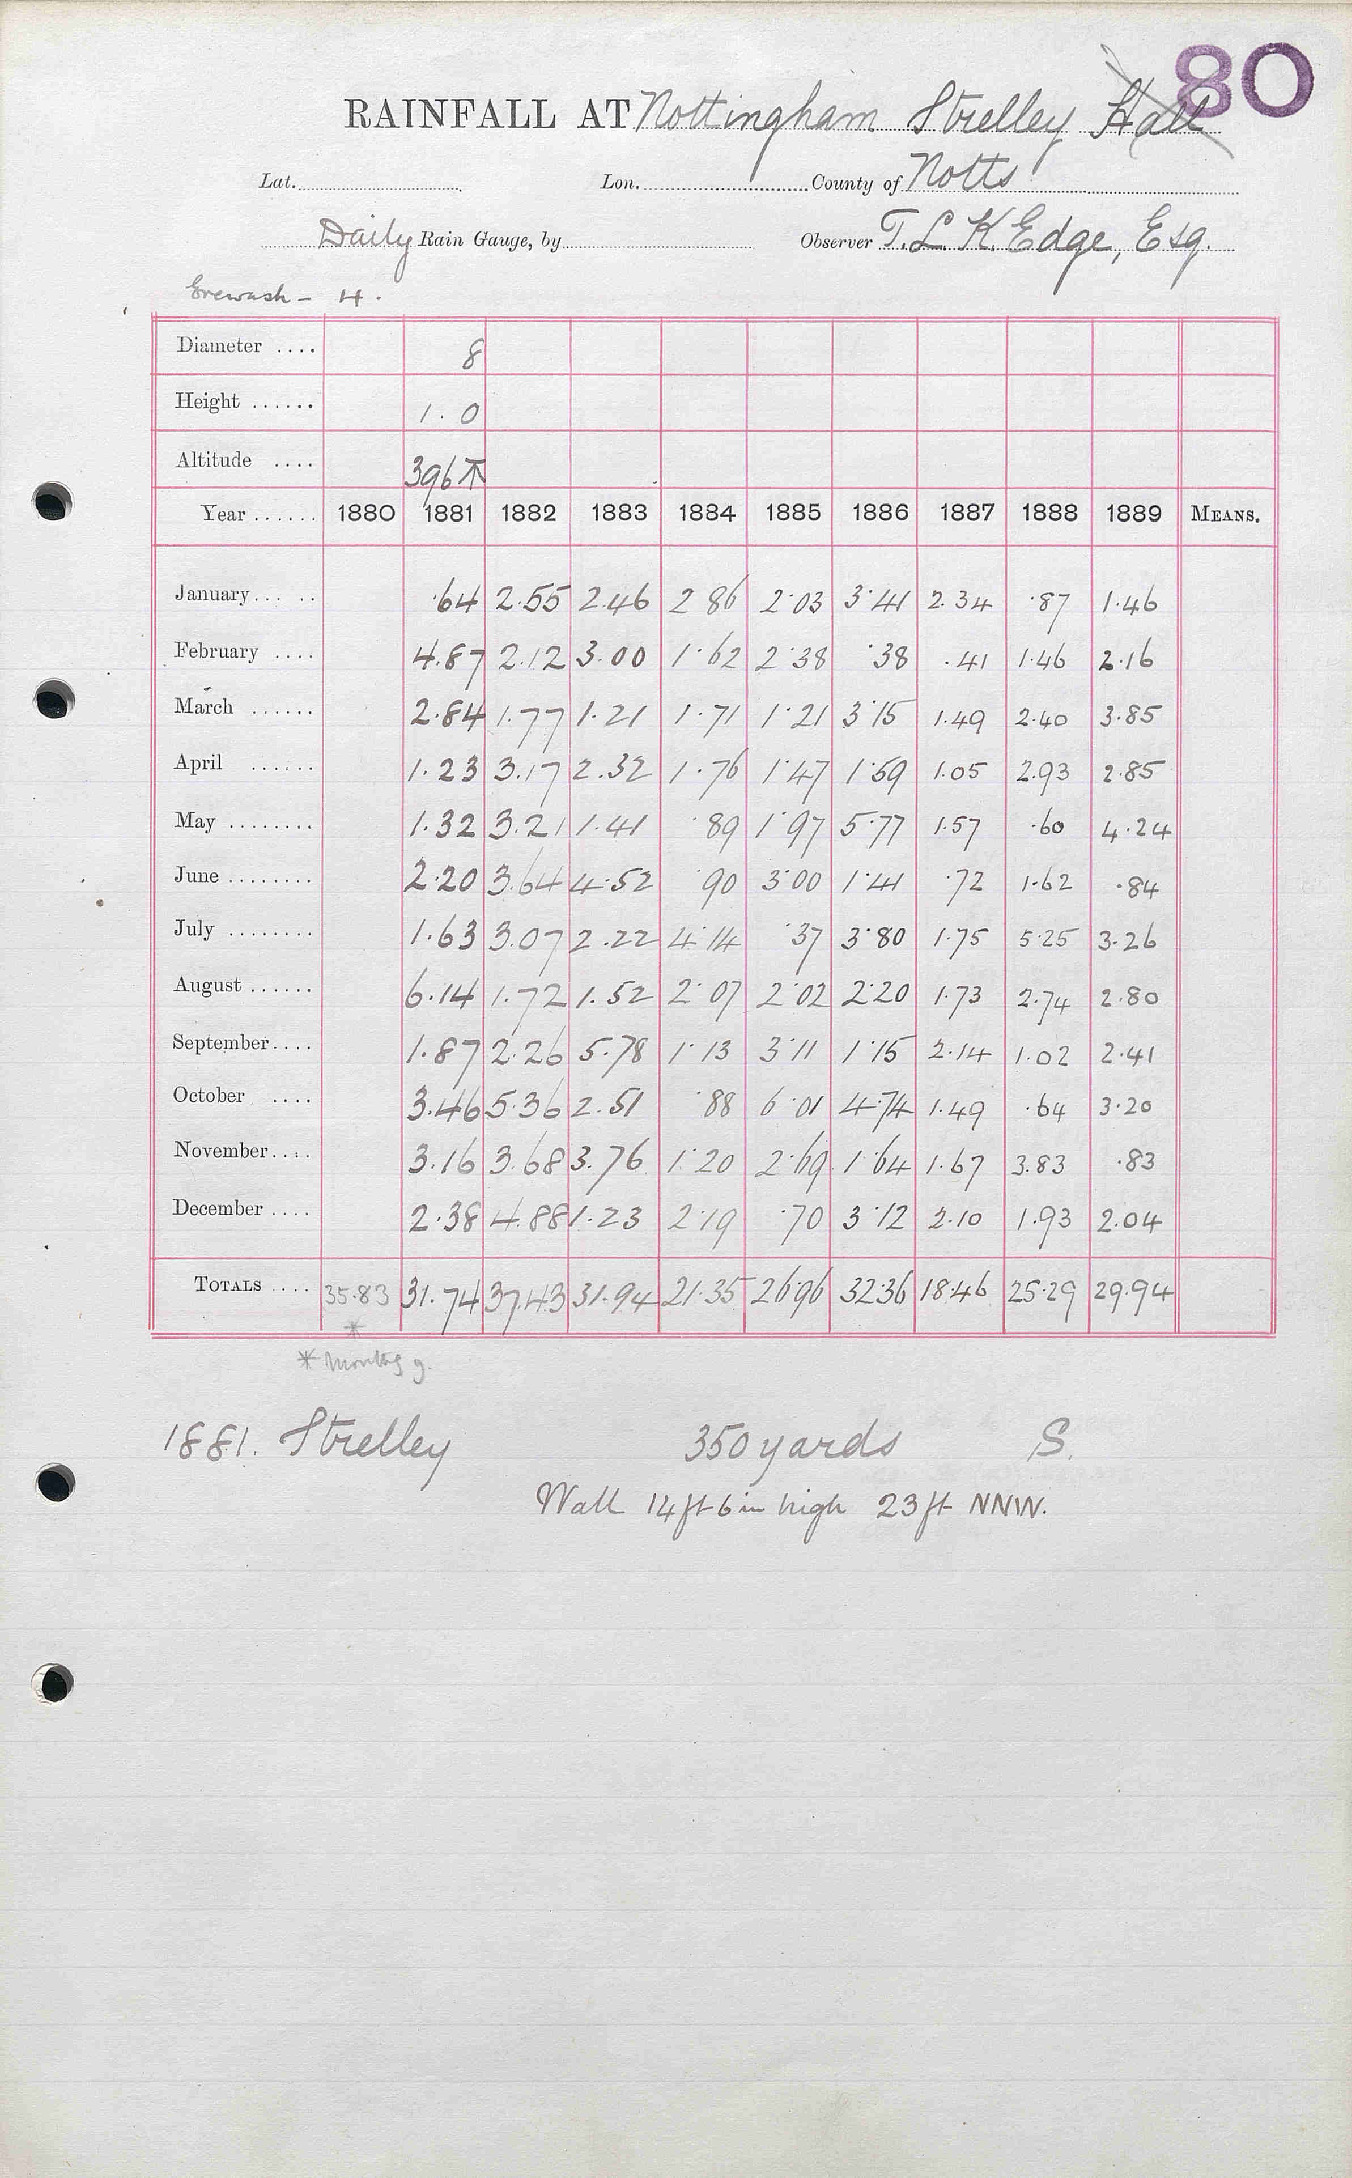 80
RAINFALL AT Nottingham Strelley Hall
Lat. Lon. County of Notts
Daily Rain Gauge, by Observer T. L. K Edge, Esq.
Erewash - H.
Diameter .... 8
Height ...... 1.0
Altitude .... 396
Year ...... 1880 1881 1882 1883 1884 1885 1886 1887 1888 1889 MEANS.
January... .. .64 2.55 2.46 2 86 2.03 3.41 2.34 .87 1.46
February .... 4.87 2.12 3.00 1.62 2.38 .38 .41 1.46 2.16
March ...... 2.84 1.77 1.21 1.71 1.21 3.15 1.49 2.40 3.85
April ...... 1.23 3.17 2.32 1.76 1.47 1.59 1.05 2.93 2.85
May ........ 1.32 3.21 1.41 .89 1.97 5.77 1.57 .60 4.24
June ........ 2.20 3.64 4.52 .90 3.00 1.41 .72 1.62 .84
July ........ 1.63 3.07 2.22 4.14 .37 3.80 1.75 5.25 3.26
August ...... 6.14 1.72 1.52 2.07 2.02 2.20 1.73 2.74 2.80
September.... 1.87 2.26 5.78 1.13 3.11 1.15 2.14 1.02 2.41
October .... 3.46 5.36 2.51 .88 6.01 4.74 1.49 .64 3.20
November.... 3.16 3.68 3.76 1.20 2.69 1.64 1.67 3.83 .83
December .... 2.38 4.88 1.23 2.19 .70 3.12 2.10 1.93 2.04
TOTALS .... 35.83 31.74 37.43 31.94 21.35 26.96 32.36 18.46 25.29 29.94
*
* Monthly g.
1881. Strelley 350 yards S.
Wall 14ft 6in high 23ft NNW.